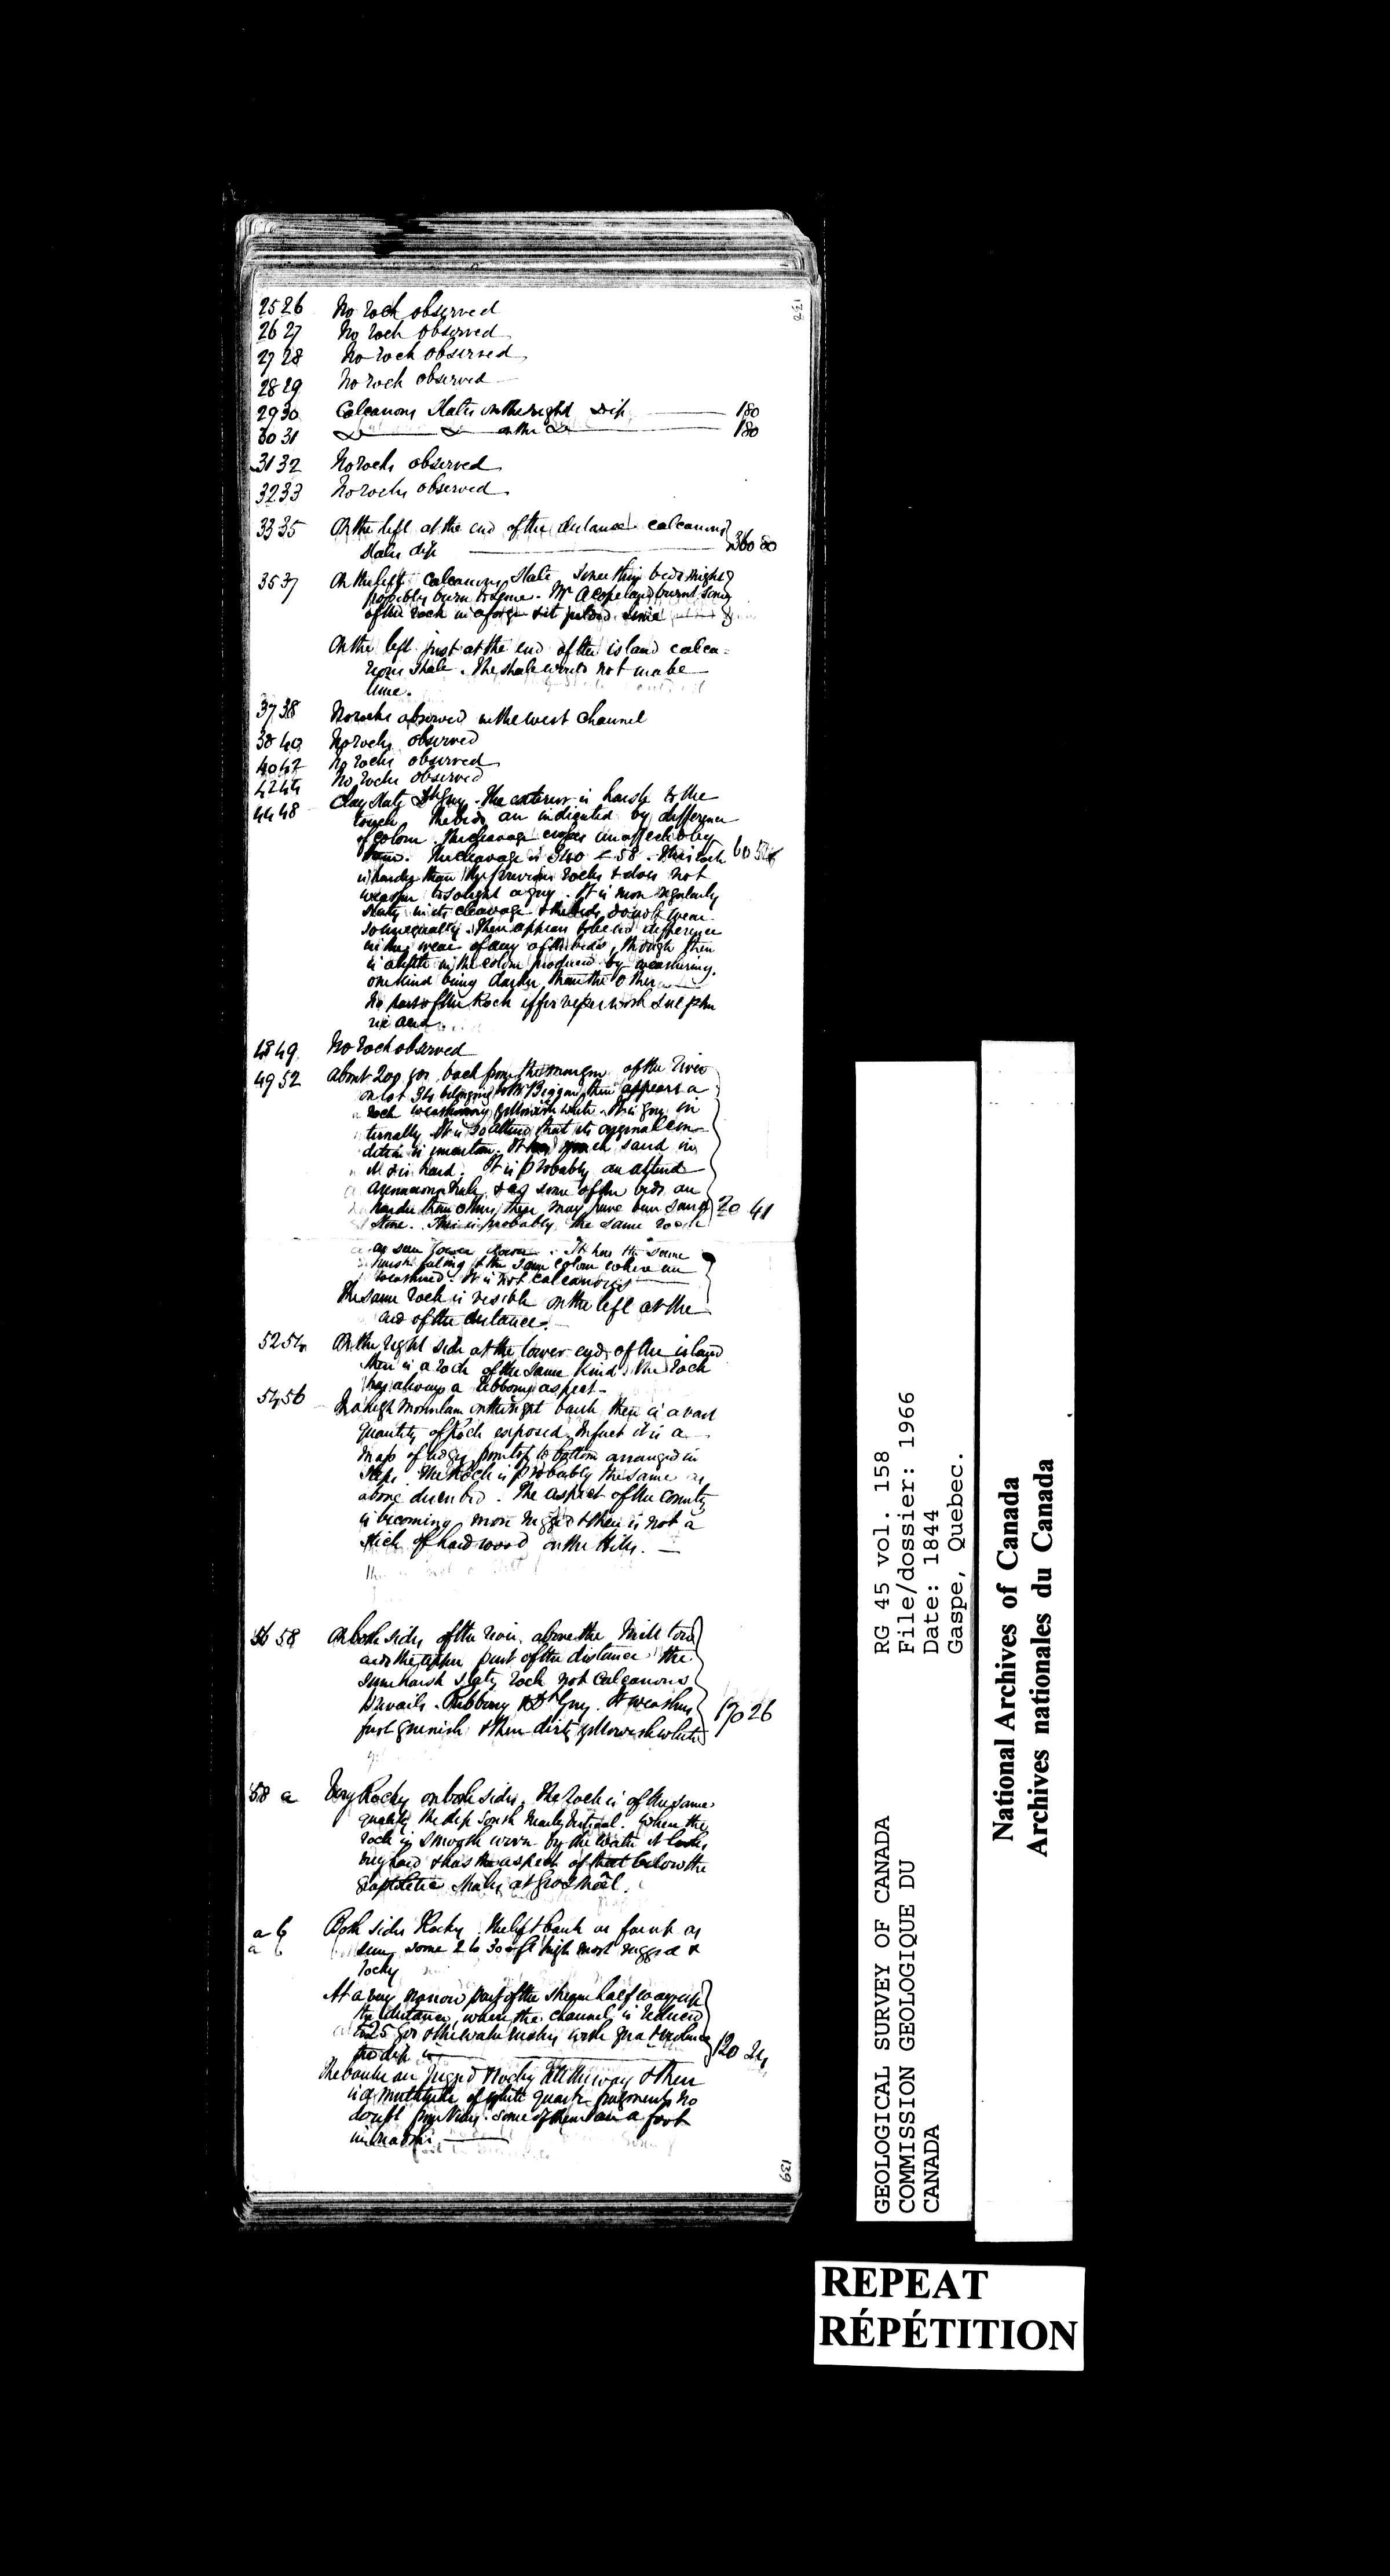 138
25 26 No rock observed
26 27 No rock observed
27 28 No rock observed
28 29 No rock observed
29 30 Calcareous Slates on the right Dip 180
30 31 Do Do on the Do 180
31 32 No rocks observed
32 33 No rocks observed
33 35 On the left at the end of the distance calcareous
slates dip 360 80
35 37 On the left calcareous slate some thin beds might
possibly burn to lime. Mr A Copeland burnt some
of the rock in a forge & it yielded lime
On the left just at the end of the island calca=
reous shale. The shale would not make
lime.
37 38 No rocks observed in the west channel
38 40 No rocks observed
40 42 No rocks observed
42 44 No rocks observed
44 48 Clay slate Dk Grey. The exterior is harsh to the
touch. The beds are indicated by difference
of colour. The cleavage crosses unaffected by
The cleavage is 340 < 58. This rock 60
is harder than the previous rocks & does not
weather to so light a grey. It is more regularly
slaty in its cleavage & the beds do not wear
so unequally. There appears to be no difference
in the wear of any of the beds, though there
is a little in the colour produced by weathering.
one kind being darker than the other
No part of the Rock effervesces with Sulphu
ric acid
48 49 No rock observed
49 52 About 200 yds back from the margin of the river
on lot 34 belonging to Mr Biggar there appears a
rock weathering yellowish white. It is grey in
ternally. It is so altered that its original con
dition is uncertain. It has much sand in
it & is hard. It is probably an altered
arenaceous shale, & as some of the beds are
harder than others there may have been sand 20 41
stone. This is probably the same rock
as seen lower down. It has the same
harsh feeling & the same colour where un
weathered. It is not calcareous
The same rock is visible on the left at the
end of the distance.
52 54 On the right side at the lower end of the island
there is a rock of the same kind. The rock
has always a ribbony aspect.
54 56 In a high mountain on the right bank there is a vast
quantity of Rock exposed. In fact it is a
mass of ledges from top to bottom arranged in
steps. The Rock is probably the same as
above described. The aspect of the country
is becoming more rugged & there is not a
stick of hard wood on the hills.
56 58 On both sides of the river above the Mill
and the upper part of the distance the
same harsh slaty rock not calcareous
prevails. Ribbony & Dk Grey. It weathers 170 26
first greenish & then dirty yellowish white
58 a Very Rocky on both sides. The rock is of the same
quality the dip South nearly vertical. Where the
rock is smooth worn by the water it looks
very hard & has the aspect of that below the
graptolitic shales at Gros Mâl.
a b Both sides Rocky. The left bank as far as
seen some 2 to 300 ft high most rugged &
rocky
At a very narrow part of the stream half way up
the distance, where the channel is reduced
to 25 yds & the water rushes with great violence
the dip is 120 24
The banks are jagged & rocky all the way & there
is a multitude of white quartz fragments no
doubt from veins. Some of them are a foot
in
139
GEOLOGICAL SURVEY OF CANADA
COMMISSION GEOLOGIQUE DU
CANADA
RG 45 vol. 158
File/dossier: 1966
Date: 1844
Gaspe, Quebec.
National Archives of Canada
Archives nationales du Canada
REPEAT
RÉPÉTITION